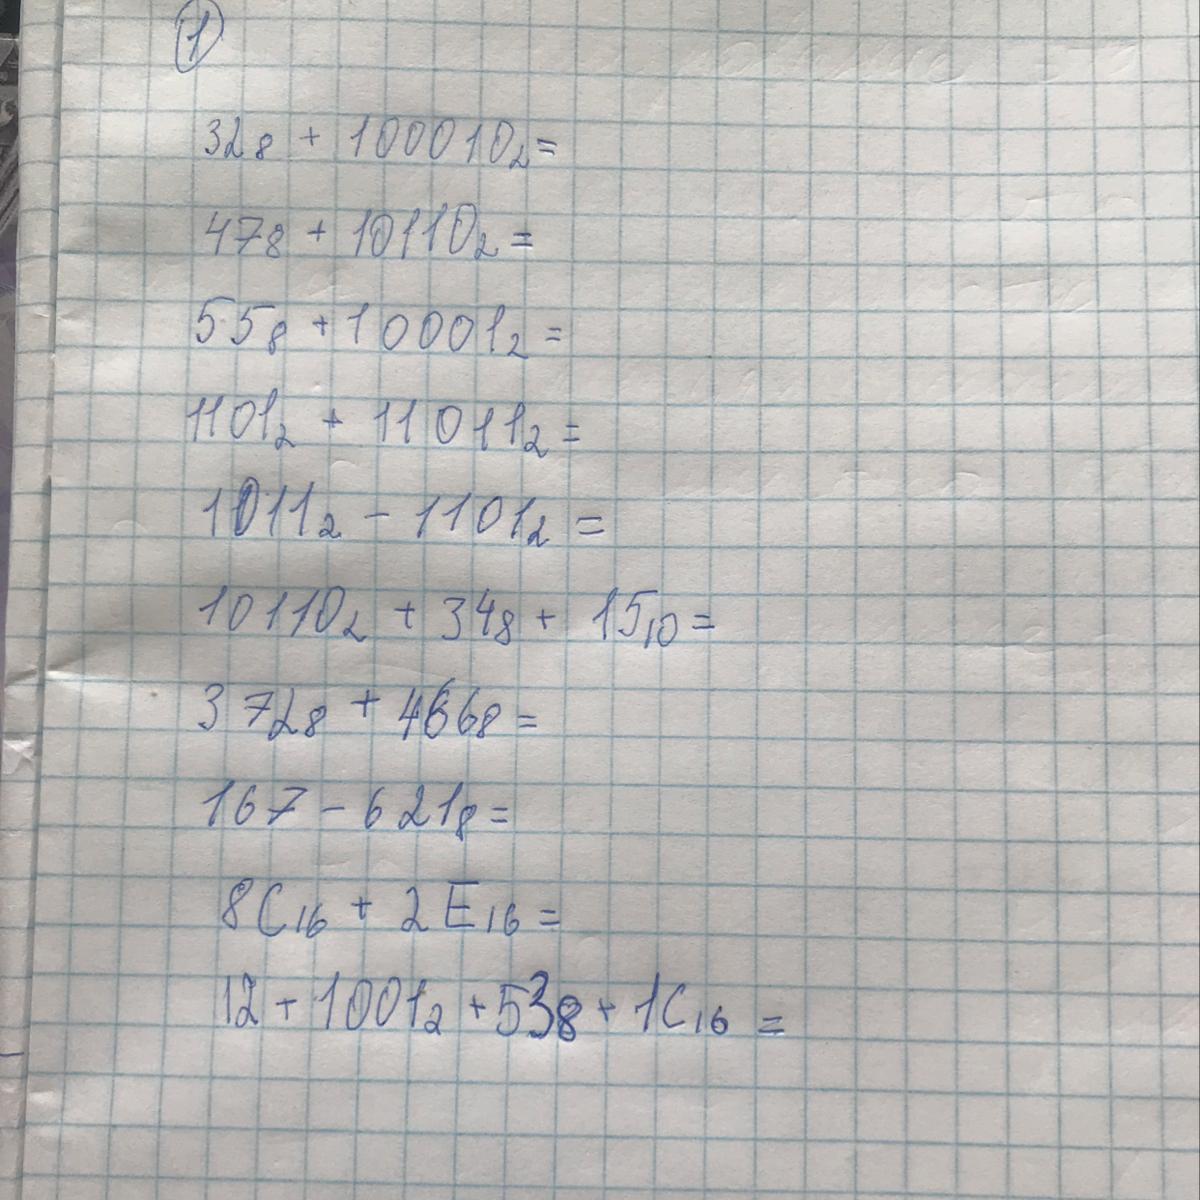 1
32₈ + 100010₂=
47₈ + 10110₂=
55₈ + 10001₂=
1101₂ + 11011₂=
1011₂ - 1101₂ =
10110₂ + 34₈ + 15₁₀=
372₈ + 466₈=
167 - 621₈=
8C₁₆ + 2E₁₆=
12 + 1001₂ + 53₈ + 1C₁₆ =